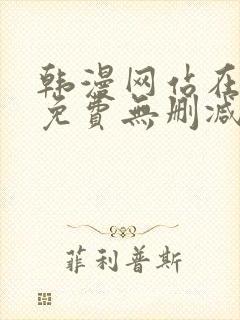 韩漫网站在
免費無删减
菲利普斯